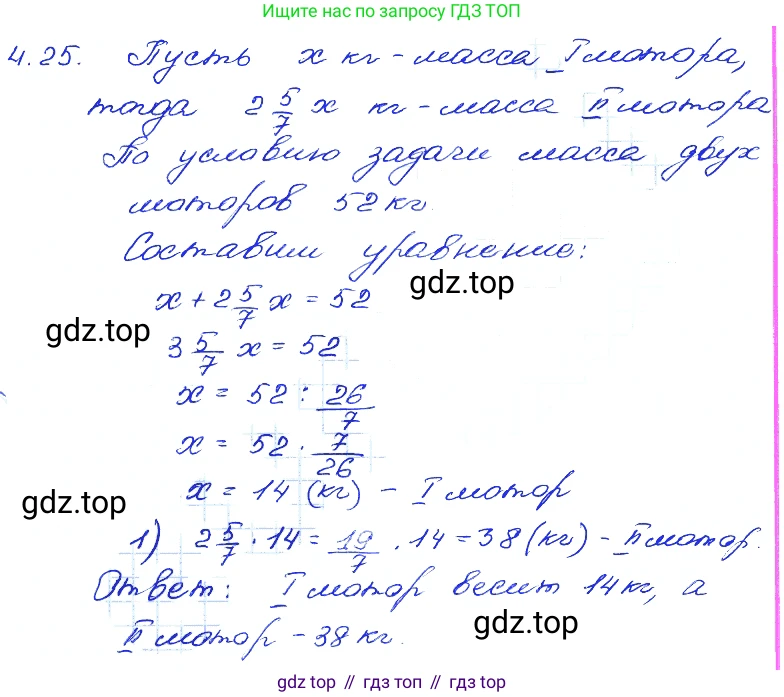 Ищите нас по запросу ГДЗ ТОП
4.25. Пусть x кг - масса I мотора,
тогда 2 5/7 x кг - масса II мотора
По условию задачи масса двух
моторов 52 кг.
Составим уравнение:
x + 2 5/7 x = 52
gdz.top
gdz.top
3 5/7 x = 52
x = 52 : 26/7
x = 52 · 7/26
x = 14 (кг) - I мотор
gdz.top
1) 2 5/7 · 14 = 19/7 · 14 = 38 (кг) - II мотор.
Ответ: I мотор весит 14 кг, а
II мотор - 38 кг.
gdz.top
gdz top // гдз топ // gdz.top // гдз топ